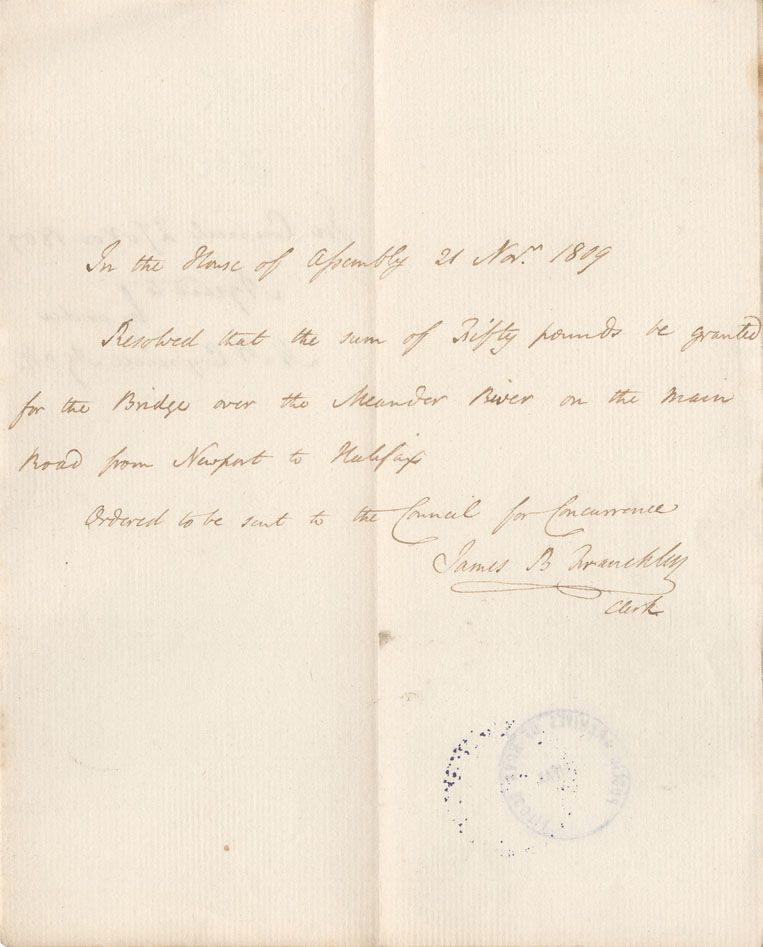 In the House of Assembly 21 Novr. 1809
Resolved that the sum of Fifty pounds be granted
for the Bridge over the Meander River on the main
Road from Newport to Halifax
Ordered to be sent to the Council for Concurrence
James B Franckley
Clerk